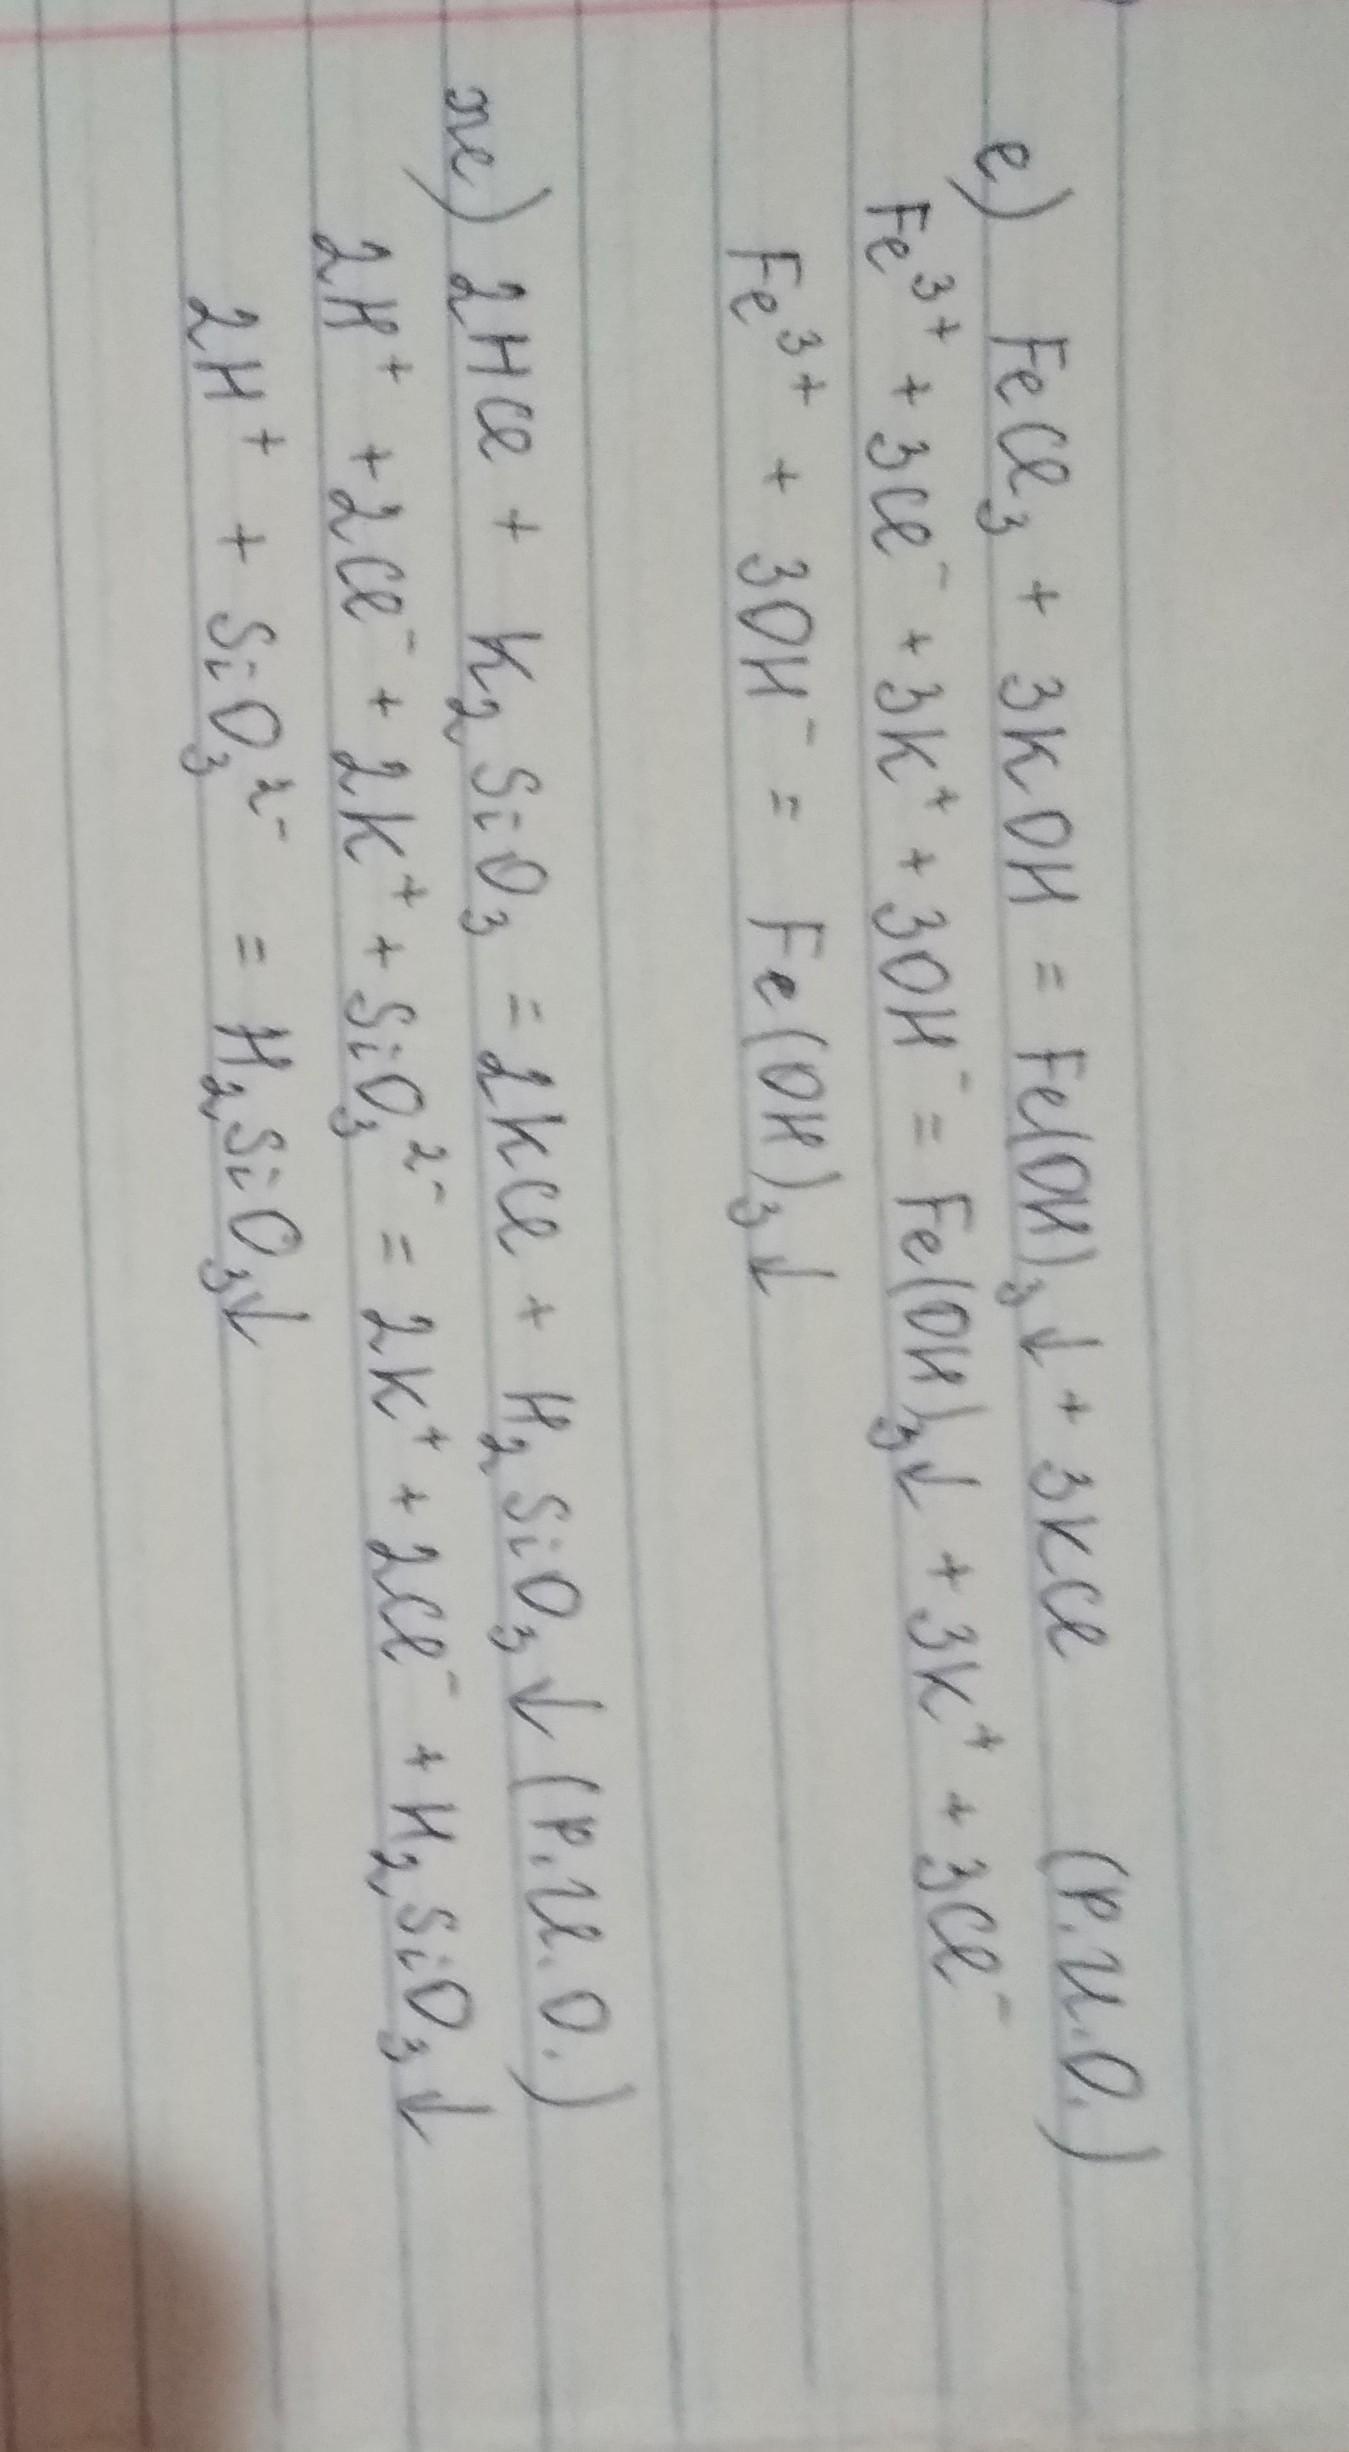 е) FeCl₃ + 3KOH = Fe(OH)₃↓ + 3KCl (Р.И.О.)
Fe³⁺ + 3Cl⁻ + 3K⁺ + 3OH⁻ = Fe(OH)₃↓ + 3K⁺ + 3Cl⁻
Fe³⁺ + 3OH⁻ = Fe(OH)₃↓
ж) 2HCl + K₂SiO₃ = 2KCl + H₂SiO₃↓ (Р.И.О.)
2H⁺ + 2Cl⁻ + 2K⁺ + SiO₃²⁻ = 2K⁺ + 2Cl⁻ + H₂SiO₃↓
2H⁺ + SiO₃²⁻ = H₂SiO₃↓